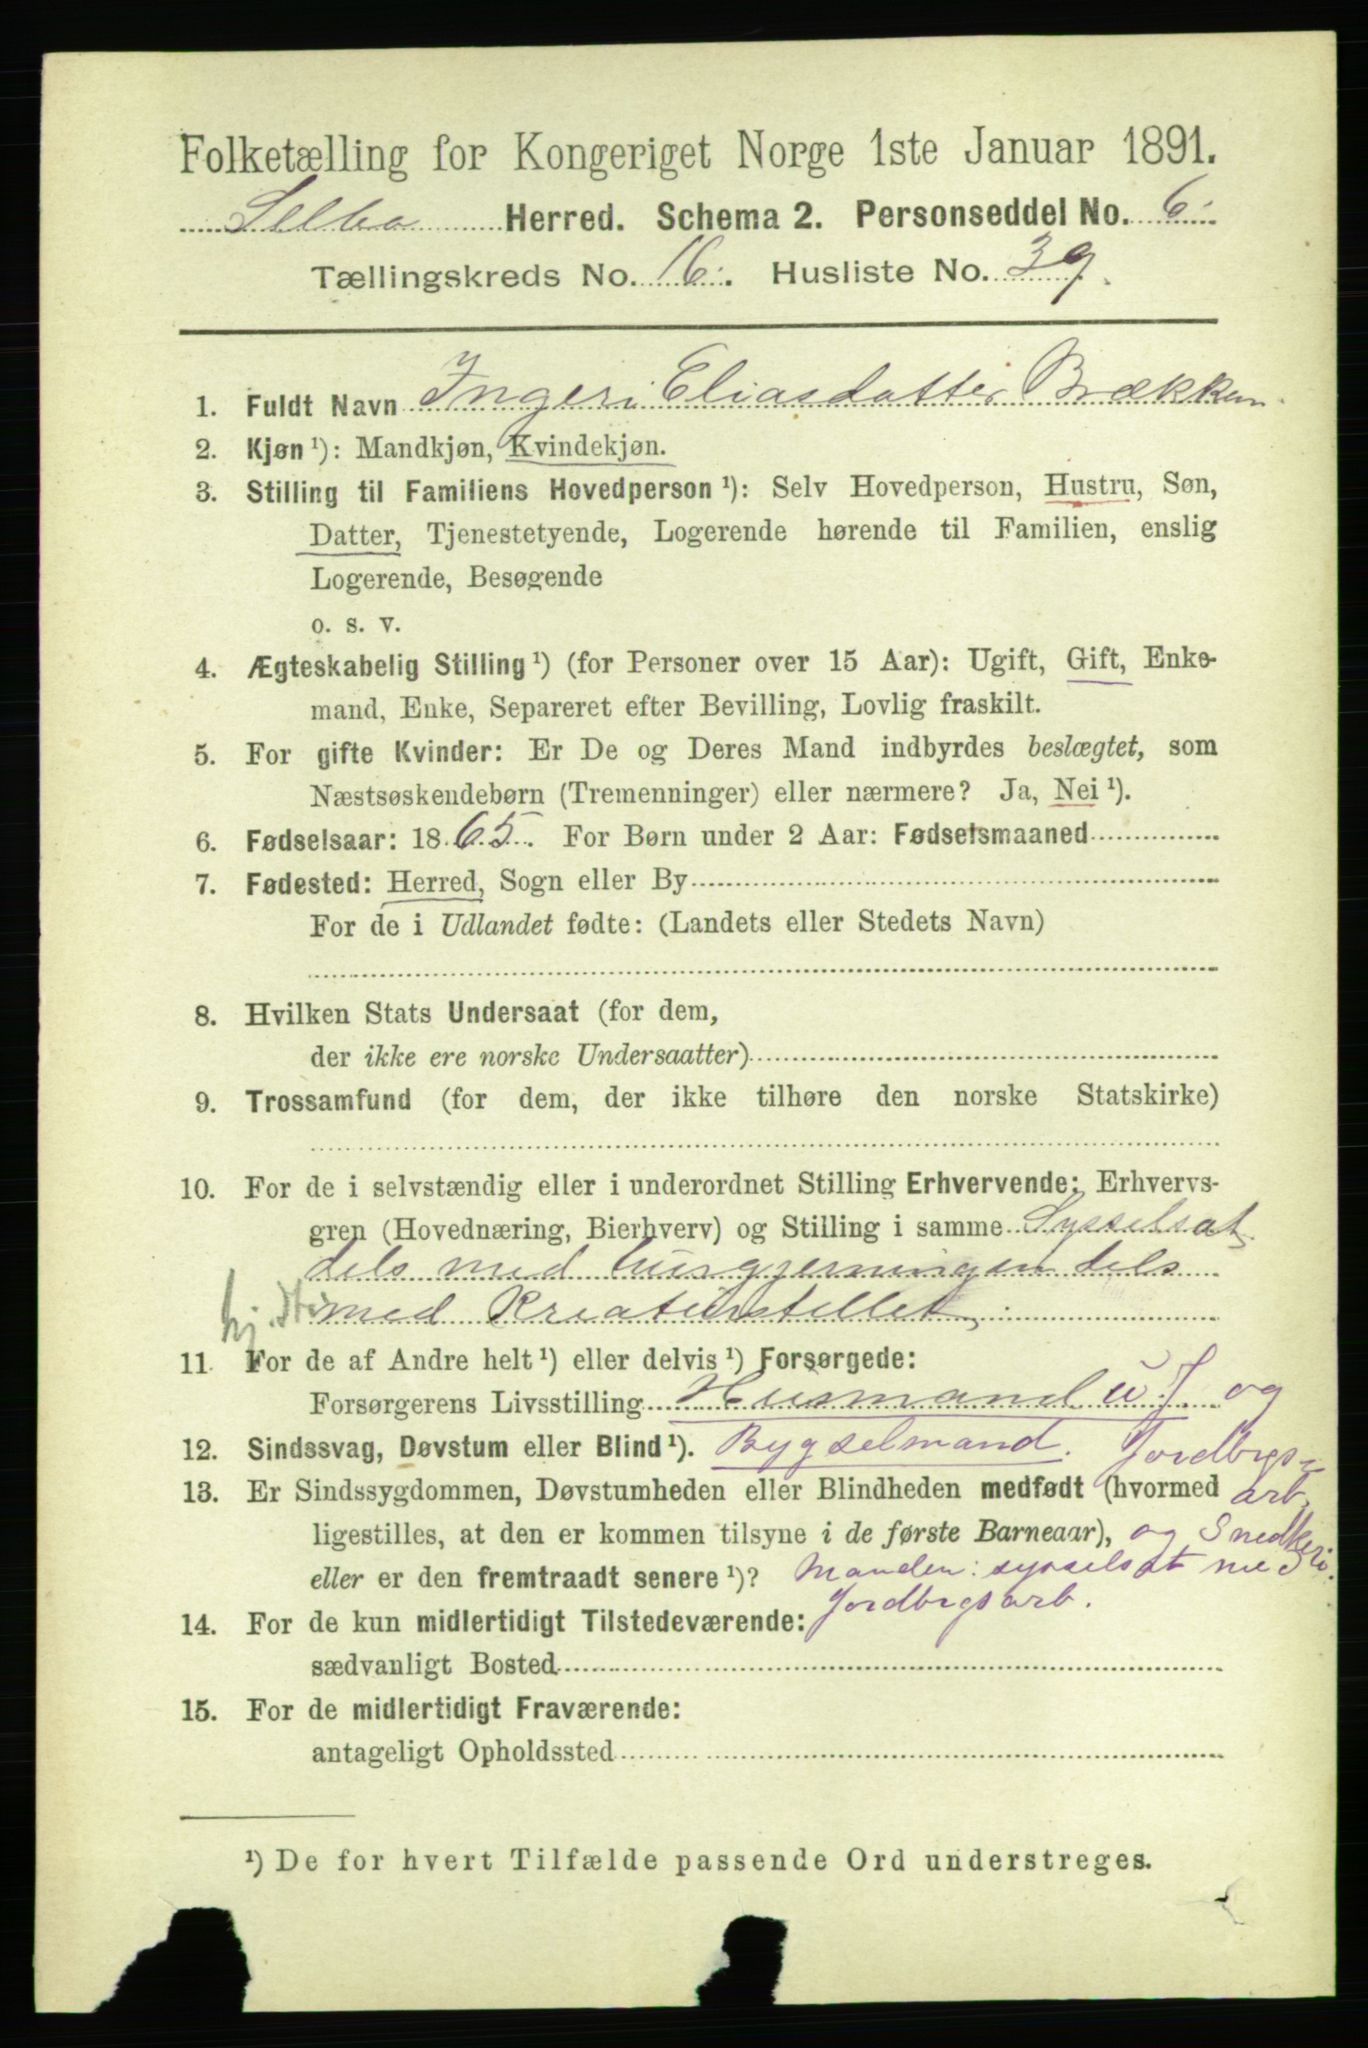 Folketælling for Kongeriget Norge 1ste Januar 1891.
Selbo Herred. Schema 2. Personseddel No. 6.
Tællingskreds No. 16. Husliste No. 39.
1. Fuldt Navn Ingeri Eliasdatter Brækken.
2. Kjøn ¹): Mandkjøn, Kvindekjøn.
3. Stilling til Familiens Hovedperson ¹): Selv Hovedperson, Hustru, Søn,
Datter, Tjenestetyende, Logerende hørende til Familien, enslig
Logerende, Besøgende
o. s. v.
4. Ægteskabelig Stilling ¹) (for Personer over 15 Aar): Ugift, Gift, Enke-
mand, Enke, Separeret efter Bevilling, Lovlig fraskilt.
5. For gifte Kvinder: Er De og Deres Mand indbyrdes beslægtet, som
Næstsøskendebørn (Tremenninger) eller nærmere? Ja, Nei ¹).
6. Fødselsaar: 1865. For Børn under 2 Aar: Fødselsmaaned
7. Fødested: Herred, Sogn eller By
For de i Udlandet fødte: (Landets eller Stedets Navn)
8. Hvilken Stats Undersaat (for dem,
der ikke ere norske Undersaatter)
9. Trossamfund (for dem, der ikke tilhøre den norske Statskirke)
10. For de i selvstændig eller i underordnet Stilling Erhvervende: Erhvervs-
gren (Hovednæring, Bierhverv) og Stilling i samme Sysselsat
dels med husgjerningen dels
med Kreaturstellet
11. For de af Andre helt ¹) eller delvis ¹) Forsørgede:
Forsørgerens Livsstilling Husmand u. J. og
12. Sindssvag, Døvstum eller Blind ¹). Bygselmand. Jordbrgs-
13. Er Sindssygdommen, Døvstumheden eller Blindheden medfødt (hvormed arb.
ligestilles, at den er kommen tilsyne i de første Barneaar), og Snedkeri.
eller er den fremtraadt senere ¹)? Manden: sysselsat med
Jordbrgsarb.
14. For de kun midlertidigt Tilstedeværende:
sædvanligt Bosted
15. For de midlertidigt Fraværende:
antageligt Opholdssted
¹) De for hvert Tilfælde passende Ord understreges.